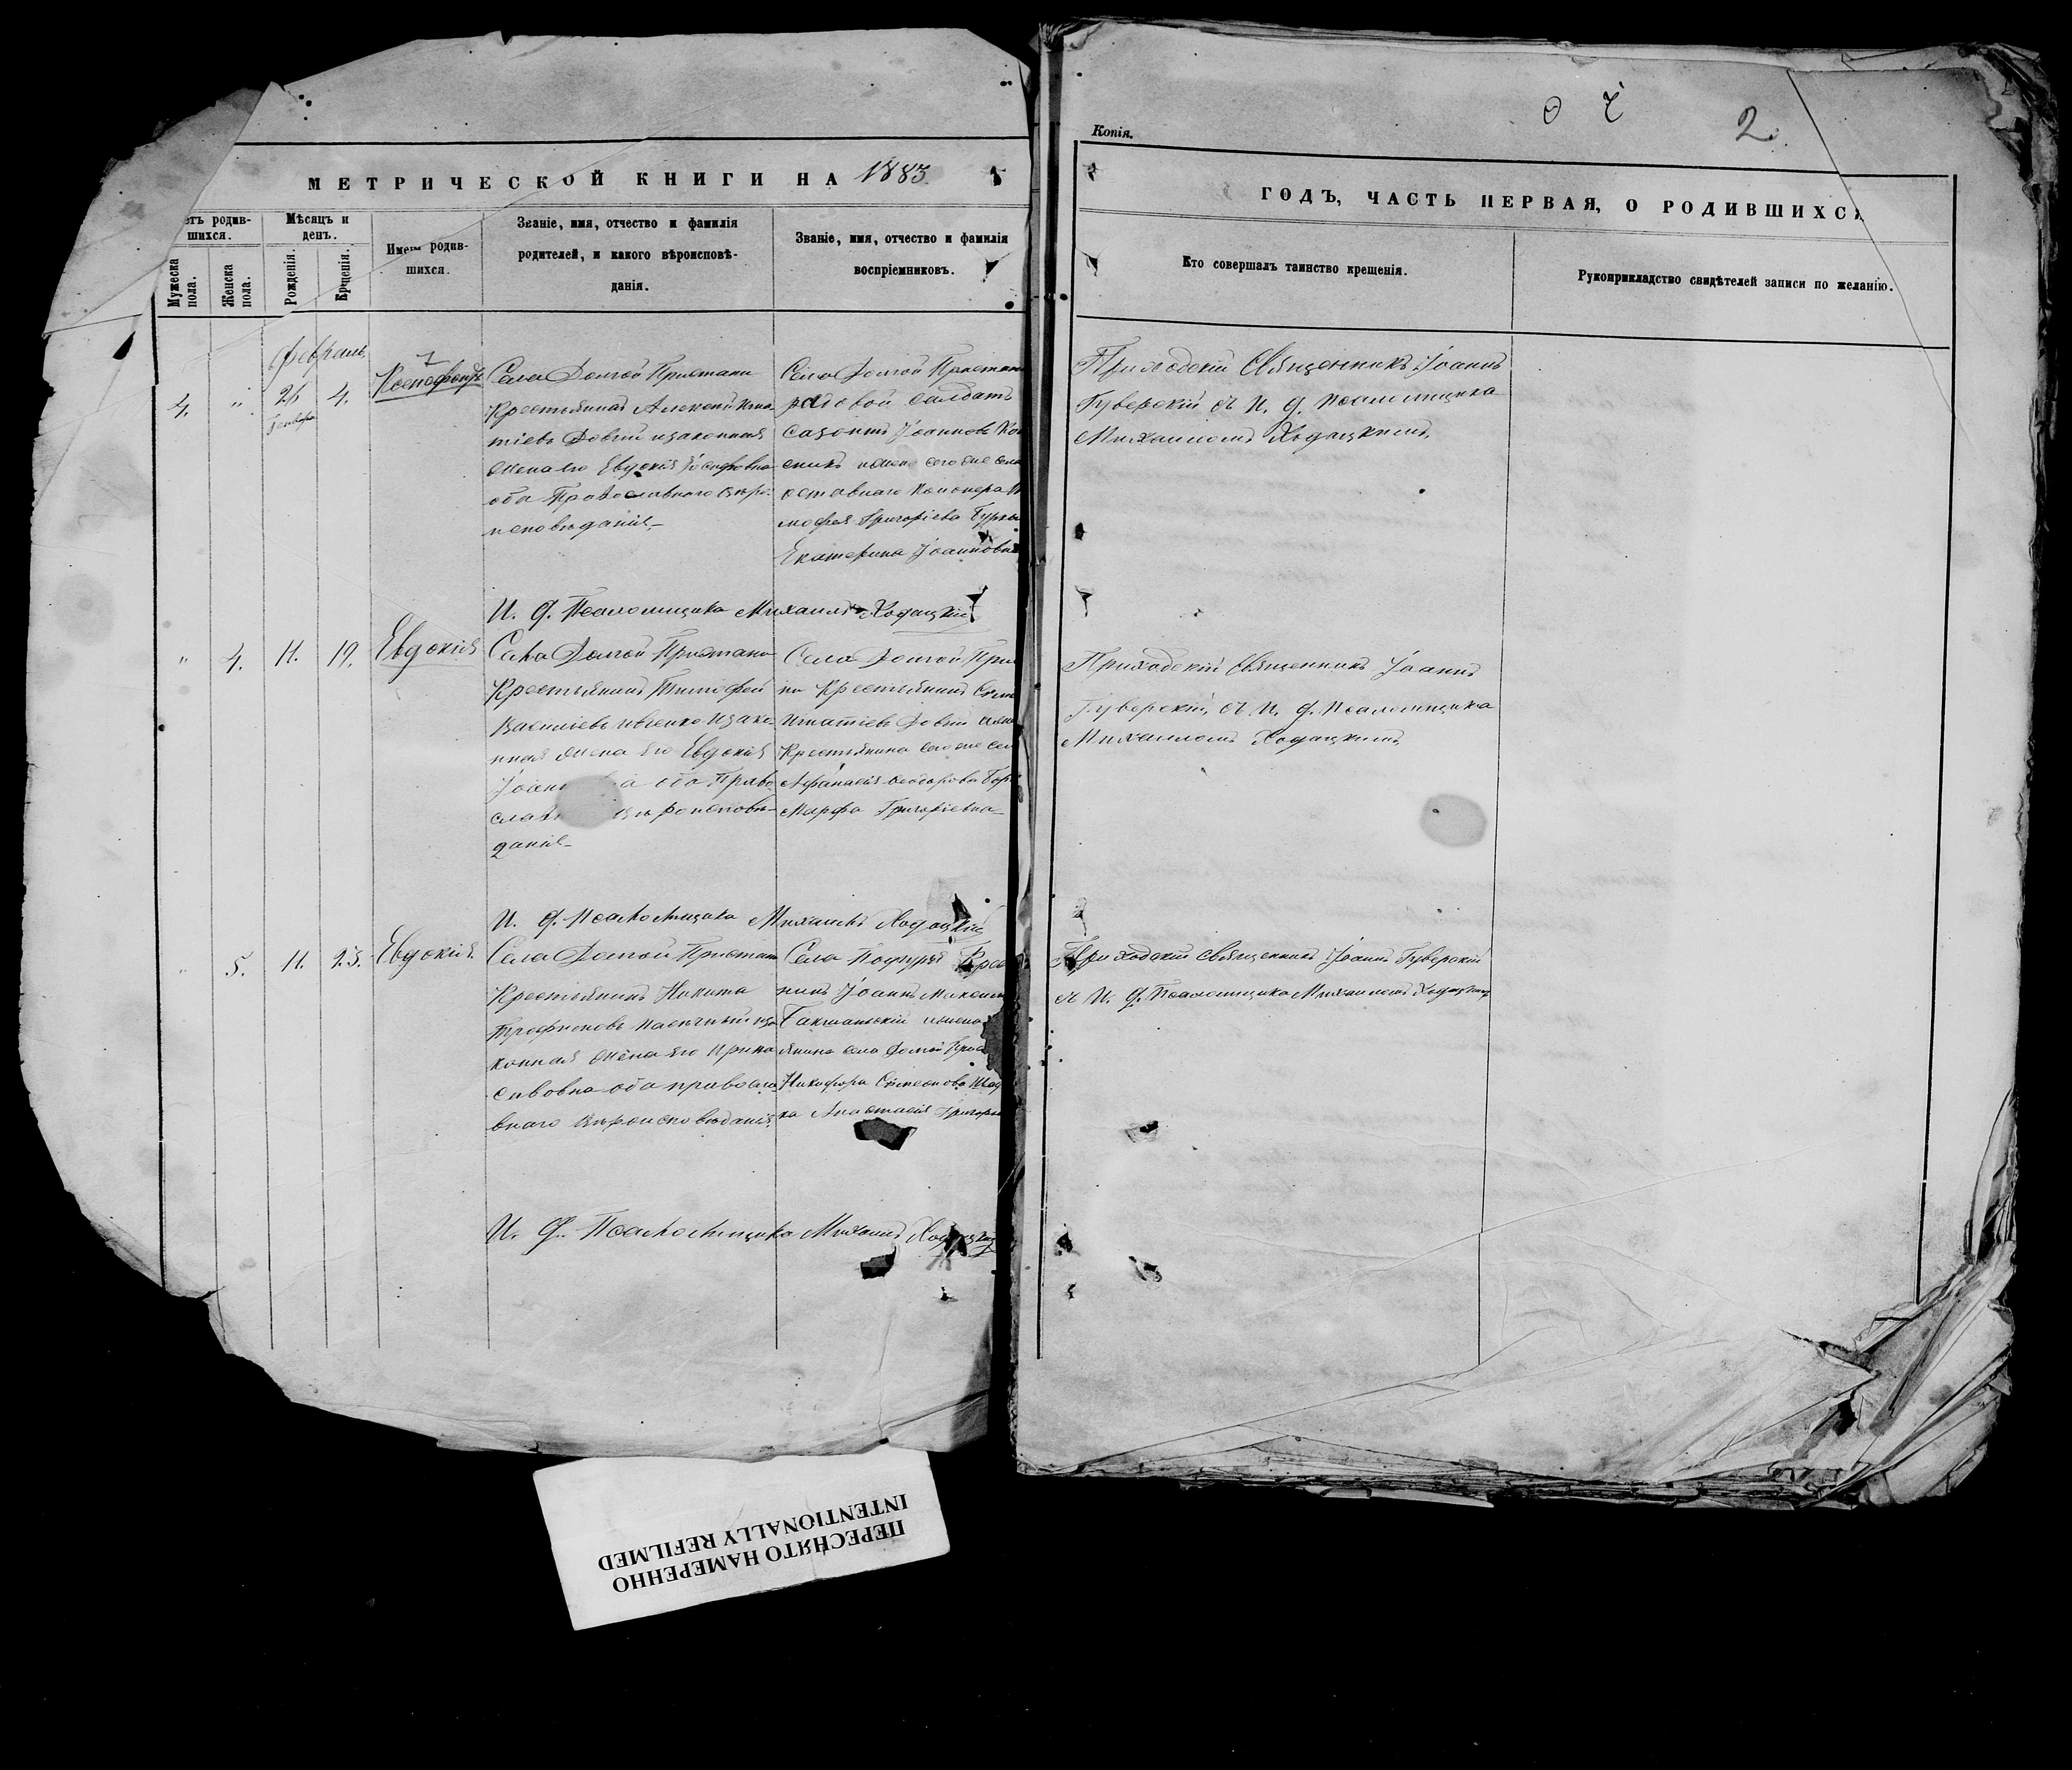 МЕТРИЧЕСКОЙ КНИГИ НА 1883
етъ родив-
шихся.
Мѣсяцъ и
день.
Мужеска
пола.
Женска
пола.
Рожденія.
Крченія.
Имена родив-
шихся.
Званіе, имя, отчество и фамилія
родителей, и какого вѣроисповѣ-
данія.
Званіе, имя, отчество и фамилія
воспріемниковъ.
Февраль
4. " 26 Января 4. Ксенофонтъ
Села Долгой Пристани
Крестьянинъ Алексей Игна
тіевъ Довгий изаконная
жена его Евдокія Іосифовна
оба Православнаго вѣро
исповѣданія
Села Долгой Пристани
рядовой солдатъ
Созонтъ Іоанновъ
и жена сего же села
отставнаго
Григоріева
Екатерина Іоанновна
И. д. Псаломщика Михаилъ Ходацкій
" 4. 11. 19. Евдокія
Села Долгой Пристани
Крестьянинъ Тимофей
Василіевъ Ивченко изако-
нная жена его Евдокія
Іоан оба Право
слав вѣроисповѣ-
данія
Села Долгой При
ни Крестьянинъ
Игнатіевъ Довгій и жена
Крестьянина сего же сел
Афанасія Феодорова
Марфа Григоріевна
И. д. Псаломщика Михаилъ Ходацкій
" 5. 11. 25. Евдокія.
Села Долгой Пристани
Крестьянинъ Никита
Трофимовъ иза
конная жена его Ирина
Саввовна оба правосла
внаго вѣроисповѣданія
Села
нинъ Іоаннъ Максим
и жена
янина села Долгой Прис
Никифора Симеонова
ка Анастасія Григорьев
И. д. Псаломщика Михаилъ Ходацкій
Копія.
2.
ГОДЪ, ЧАСТЬ ПЕРВАЯ, О РОДИВШИХСЯ
Кто совершалъ таинство крещенія.
Рукоприкладство свидѣтелей записи по желанію.
Приходскій Священникъ Іоаннъ
Гуверскій съ И. д. псаломщика
Михаиломъ Ходацкимъ,
Приходскій Священникъ Іоаннъ
Гуверскій, съ И. д. псаломщика
Михаиломъ Ходацкимъ
Приходскій священникъ Іоаннъ Гуверскій
съ И. д. Псаломщика Михаиломъ Ходацкимъ
ПЕРЕСНЯТО НАМЕРЕННО
INTENTIONALLY REFILMED